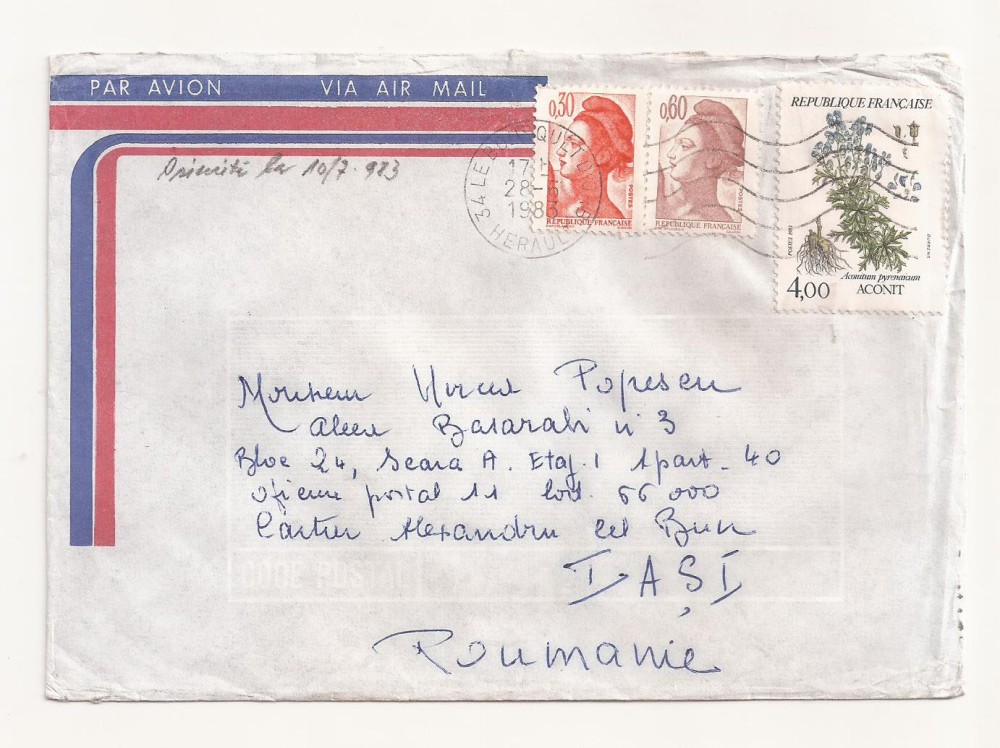 PAR AVION VIA AIR MAIL
0,30
0,60
POSTES
REPUBLIQUE FRANÇAISE
POSTES
REPUBLIQUE FRANÇAISE
REPUBLIQUE FRANÇAISE
POSTES
Aconitum pyrenaicum
4,00 ACONIT
34 LE
17H
28-6
1983
HERAULT
10/7.983
Monsieur Mircea Popescu
aleea Basarabi n° 3
Bloc 24, Scara A. Etaj. 1 Apart. 40
oficiul postal 11 Cod. 6600
Cartier Alexandru cel Bun
IAȘI
Roumanie
CODE POSTAL